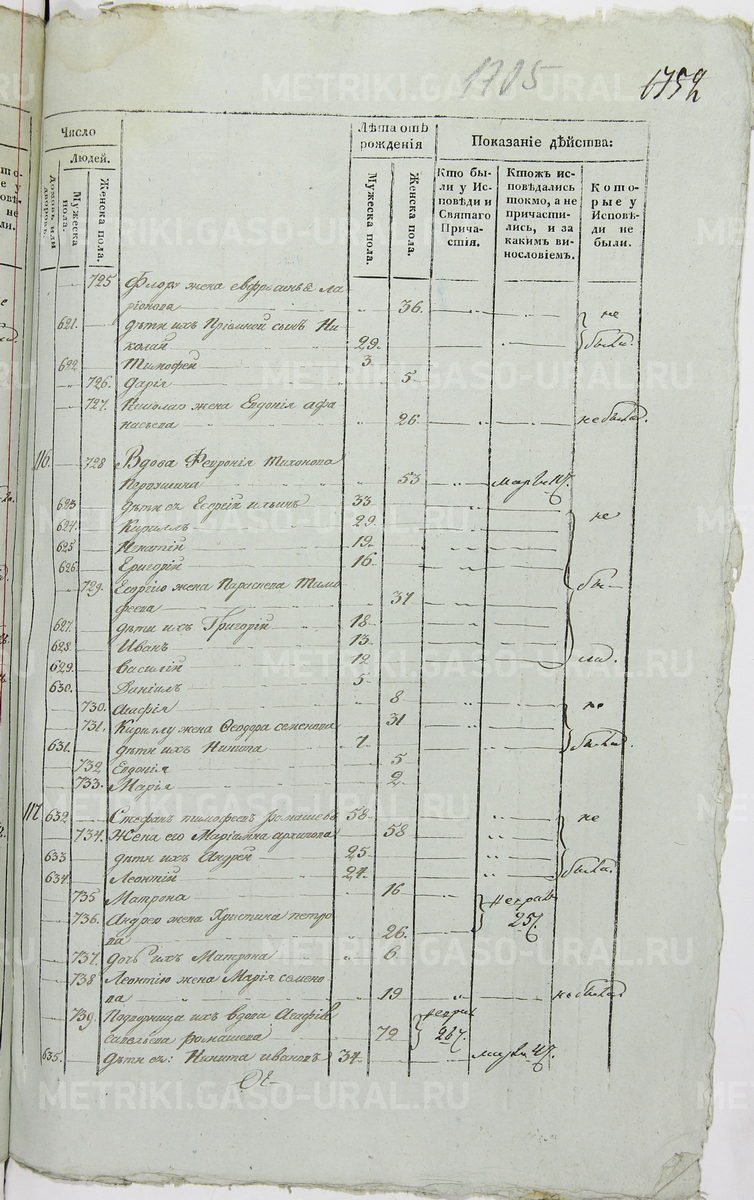 1705
1752
Число
Людей.
Домовъ или дворовъ.
Мужеска пола.
Женска пола.
Лѣта отъ рожденія
Мужеска пола.
Женска пола.
Показаніе дѣйства:
Кто были у Исповѣди и Святаго Причастія.
Ктожъ исповѣдались токмо, а не причастились, и за какимъ винословіемъ.
Которые у Исповѣди не были.
725 Флору жена Евфросинья Ла
ріонова 36. не
621. дѣти ихъ Пріемной сынъ Ни
колай 29. были.
622 Тимофей 3
726. Дарія 5
727. Николаю жена Евдокія Афа
насьева 26. не были.
116. 728 Вдова Феѵронія Тихонова
53
623 дѣти ея Георгій Ильинъ 33 не
624. Кириллъ 29.
625 Игнатій 19.
626. Григорій 16. бы
729. Георгію жена Параскева Тимо
феева 37
627. дѣти ихъ Григорій 18.
628. Иванъ 13.
629. Василій 12 ли.
630. Даніилъ 5
730. Агафія 8 не
731. Кириллу жена Ѳеодора Семенова 31
631. дѣти ихъ Никита 7. были.
732 Евдокія 5
733. Марія 2
117. 632. Стефанъ Тимофеевъ Ромашевъ 58 не
734. Жена его Маріамна Архипова 58
633 дѣти ихъ Андрей 25 были.
634. Леонтій 24.
735 Матрона 16
736. Андрею жена Христина Петро
ва 26. 25
737. дочь ихъ Матрона 6
738 Леонтію жена Марія Семено
ва 19 не были
739. Подворница ихъ вдова Агафія
Савельева Ромашева 72 26
635. дѣти ея: Никита Ивановъ 34.
METRIKI.GASO-URAL.RU